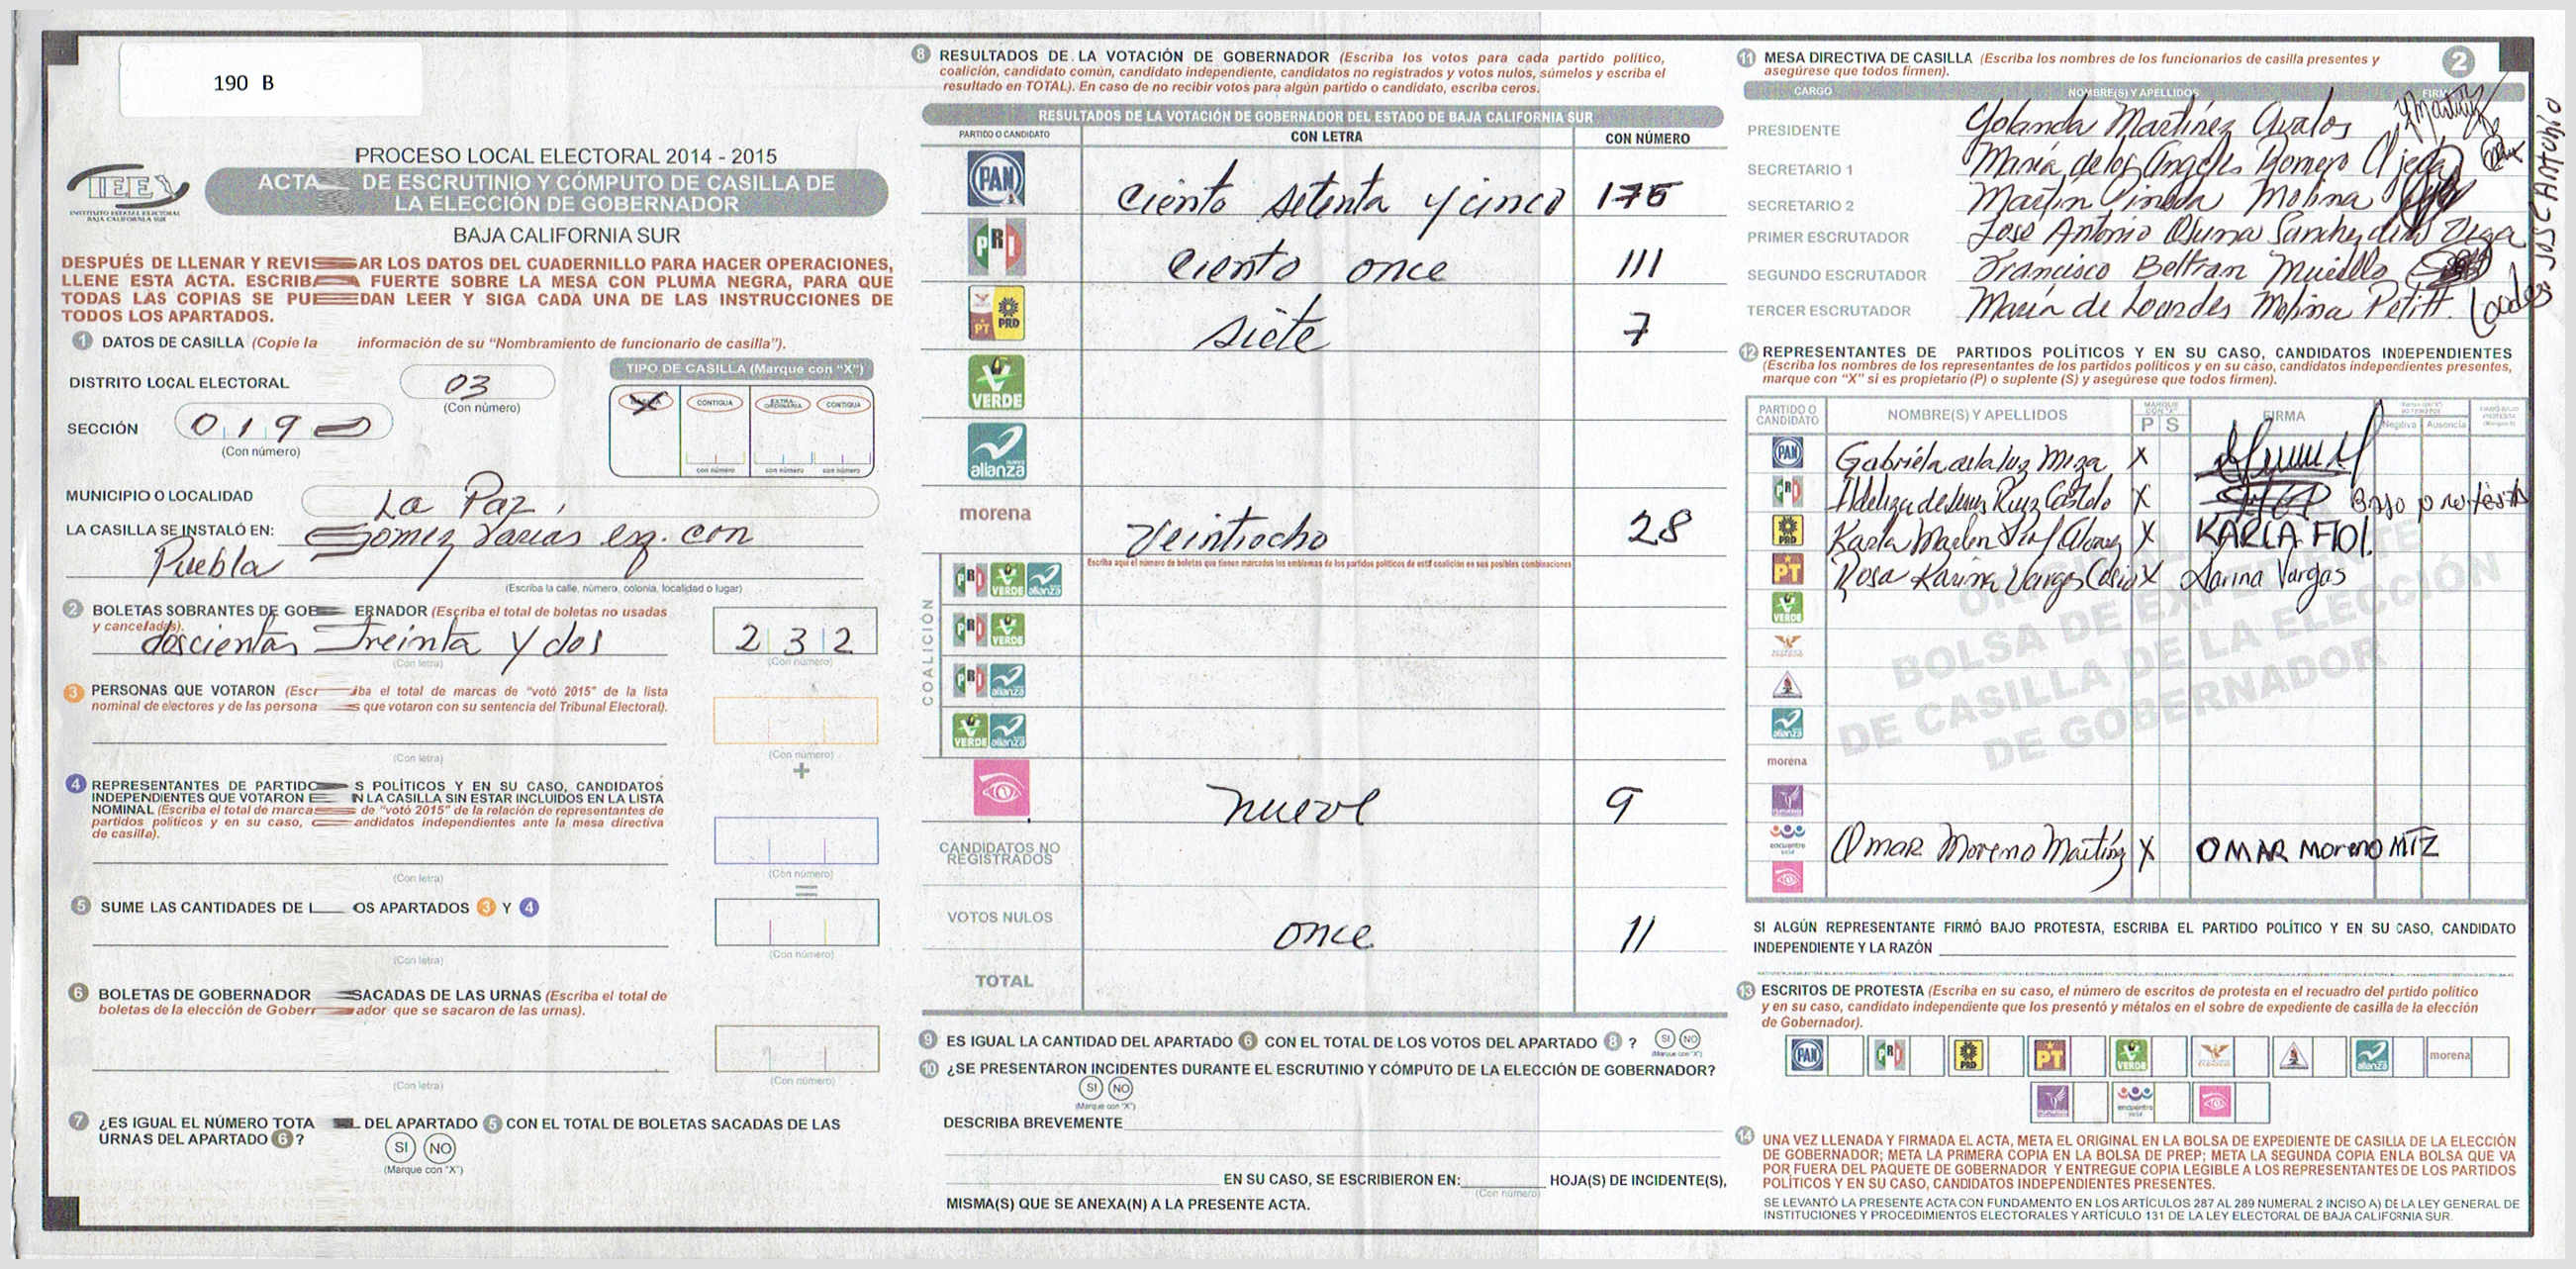 190 B
IEE
INSTITUTO ESTATAL ELECTORAL
BAJA CALIFORNIA SUR
PROCESO LOCAL ELECTORAL 2014 - 2015
ACTA DE ESCRUTINIO Y CÓMPUTO DE CASILLA DE
LA ELECCIÓN DE GOBERNADOR
BAJA CALIFORNIA SUR
DESPUÉS DE LLENAR Y REVISAR LOS DATOS DEL CUADERNILLO PARA HACER OPERACIONES,
LLENE ESTA ACTA. ESCRIBA FUERTE SOBRE LA MESA CON PLUMA NEGRA, PARA QUE
TODAS LAS COPIAS SE PUEDAN LEER Y SIGA CADA UNA DE LAS INSTRUCCIONES DE
TODOS LOS APARTADOS.
1 DATOS DE CASILLA (Copie la información de su "Nombramiento de funcionario de casilla").
DISTRITO LOCAL ELECTORAL 03
(Con número)
TIPO DE CASILLA (Marque con "X")
X CONTIGUA EXTRA-ORDINARIA CONTIGUA
con número con número con número
SECCIÓN 0190
(Con número)
MUNICIPIO O LOCALIDAD La Paz,
LA CASILLA SE INSTALÓ EN: Gomez Farias esq. con
Puebla
(Escriba la calle, número, colonia, localidad o lugar)
2 BOLETAS SOBRANTES DE GOBERNADOR (Escriba el total de boletas no usadas
y canceladas).
doscientas treinta y dos 232
(Con letra) (Con número)
3 PERSONAS QUE VOTARON (Escriba el total de marcas de "votó 2015" de la lista
nominal de electores y de las personas que votaron con su sentencia del Tribunal Electoral).
(Con letra) (Con número)
+
4 REPRESENTANTES DE PARTIDOS POLÍTICOS Y EN SU CASO, CANDIDATOS
INDEPENDIENTES QUE VOTARON EN LA CASILLA SIN ESTAR INCLUIDOS EN LA LISTA
NOMINAL (Escriba el total de marcas de "votó 2015" de la relación de representantes de
partidos políticos y en su caso, candidatos independientes ante la mesa directiva
de casilla).
(Con letra) (Con número)
=
5 SUME LAS CANTIDADES DE LOS APARTADOS 3 Y 4
(Con letra) (Con número)
6 BOLETAS DE GOBERNADOR SACADAS DE LAS URNAS (Escriba el total de
boletas de la elección de Gobernador que se sacaron de las urnas).
(Con letra) (Con número)
7 ¿ES IGUAL EL NÚMERO TOTAL DEL APARTADO 5 CON EL TOTAL DE BOLETAS SACADAS DE LAS
URNAS DEL APARTADO 6 ?
SI NO
(Marque con "X")
8 RESULTADOS DE LA VOTACIÓN DE GOBERNADOR (Escriba los votos para cada partido político,
coalición, candidato común, candidato independiente, candidatos no registrados y votos nulos, súmelos y escriba el
resultado en TOTAL). En caso de no recibir votos para algún partido o candidato, escriba ceros.
RESULTADOS DE LA VOTACIÓN DE GOBERNADOR DEL ESTADO DE BAJA CALIFORNIA SUR
PARTIDO O CANDIDATO CON LETRA CON NÚMERO
PAN ciento setenta y cinco 175
PRI ciento once 111
PT PRD siete 7
VERDE
alianza
morena veintiocho 28
Escriba aquí el número de boletas que tienen marcados los emblemas de los partidos políticos de esta coalición en sus posibles combinaciones
COALICIÓN
PRI VERDE alianza
PRI VERDE
PRI alianza
VERDE alianza
nueve 9
CANDIDATOS NO
REGISTRADOS
VOTOS NULOS once 11
TOTAL
9 ES IGUAL LA CANTIDAD DEL APARTADO 6 CON EL TOTAL DE LOS VOTOS DEL APARTADO 8 ? SI NO
(Marque con "X")
10 ¿SE PRESENTARON INCIDENTES DURANTE EL ESCRUTINIO Y CÓMPUTO DE LA ELECCIÓN DE GOBERNADOR?
SI NO
(Marque con "X")
DESCRIBA BREVEMENTE
EN SU CASO, SE ESCRIBIERON EN: HOJA(S) DE INCIDENTE(S),
(Con número)
MISMA(S) QUE SE ANEXA(N) A LA PRESENTE ACTA.
11 MESA DIRECTIVA DE CASILLA (Escriba los nombres de los funcionarios de casilla presentes y
asegúrese que todos firmen).
2
CARGO NOMBRE(S) Y APELLIDOS FIRMA
PRESIDENTE Yolanda Martínez Avalos
SECRETARIO 1 María de los Angeles Romero Ojeda
SECRETARIO 2 Martín Pineda Molina
PRIMER ESCRUTADOR Jose Antonio Osuna Sanchez de la Vega
JOSE ANTONIO
SEGUNDO ESCRUTADOR Francisco Beltran Murillo
TERCER ESCRUTADOR María de Lourdes Molina Petit.
12 REPRESENTANTES DE PARTIDOS POLÍTICOS Y EN SU CASO, CANDIDATOS INDEPENDIENTES
(Escriba los nombres de los representantes de los partidos políticos y en su caso, candidatos independientes presentes,
marque con "X" si es propietario (P) o suplente (S) y asegúrese que todos firmen).
PARTIDO O
CANDIDATO NOMBRE(S) Y APELLIDOS MARQUE CON "X" P S FIRMA Negativa Ausencia
PAN Gabriela de la luz Meza X
PRI de Jesus Ruiz X Bajo protesta
PRD Karla X KARLA FIOL
PT Rosa Karina Vargas X Karina Vargas
VERDE
alianza
morena
encuentro social Omar Moreno Martínez X OMAR Moreno MTZ
ORIGINAL
BOLSA DE EXPEDIENTE
DE CASILLA DE LA ELECCIÓN
DE GOBERNADOR
SI ALGÚN REPRESENTANTE FIRMÓ BAJO PROTESTA, ESCRIBA EL PARTIDO POLÍTICO Y EN SU CASO, CANDIDATO
INDEPENDIENTE Y LA RAZÓN
13 ESCRITOS DE PROTESTA (Escriba en su caso, el número de escritos de protesta en el recuadro del partido político
y en su caso, candidato independiente que los presentó y métalos en el sobre de expediente de casilla de la elección
de Gobernador).
PAN PRI PRD PT VERDE alianza morena
encuentro social
14 UNA VEZ LLENADA Y FIRMADA EL ACTA, META EL ORIGINAL EN LA BOLSA DE EXPEDIENTE DE CASILLA DE LA ELECCIÓN
DE GOBERNADOR; META LA PRIMERA COPIA EN LA BOLSA DE PREP; META LA SEGUNDA COPIA EN LA BOLSA QUE VA
POR FUERA DEL PAQUETE DE GOBERNADOR Y ENTREGUE COPIA LEGIBLE A LOS REPRESENTANTES DE LOS PARTIDOS
POLÍTICOS Y EN SU CASO, CANDIDATOS INDEPENDIENTES PRESENTES.
SE LEVANTÓ LA PRESENTE ACTA CON FUNDAMENTO EN LOS ARTÍCULOS 287 AL 289 NUMERAL 2 INCISO A) DE LA LEY GENERAL DE
INSTITUCIONES Y PROCEDIMIENTOS ELECTORALES Y ARTÍCULO 131 DE LA LEY ELECTORAL DE BAJA CALIFORNIA SUR.